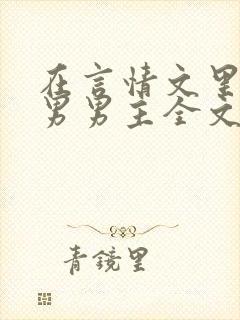 在言情文里
男男主全文
青镜里